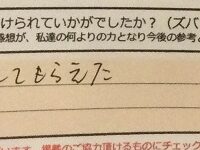 けられていかがでしたか？（ズバ
感想が、私達の何よりの力となり今後の参考
してもらえた
います。掲載のご協力頂けるものにチェック